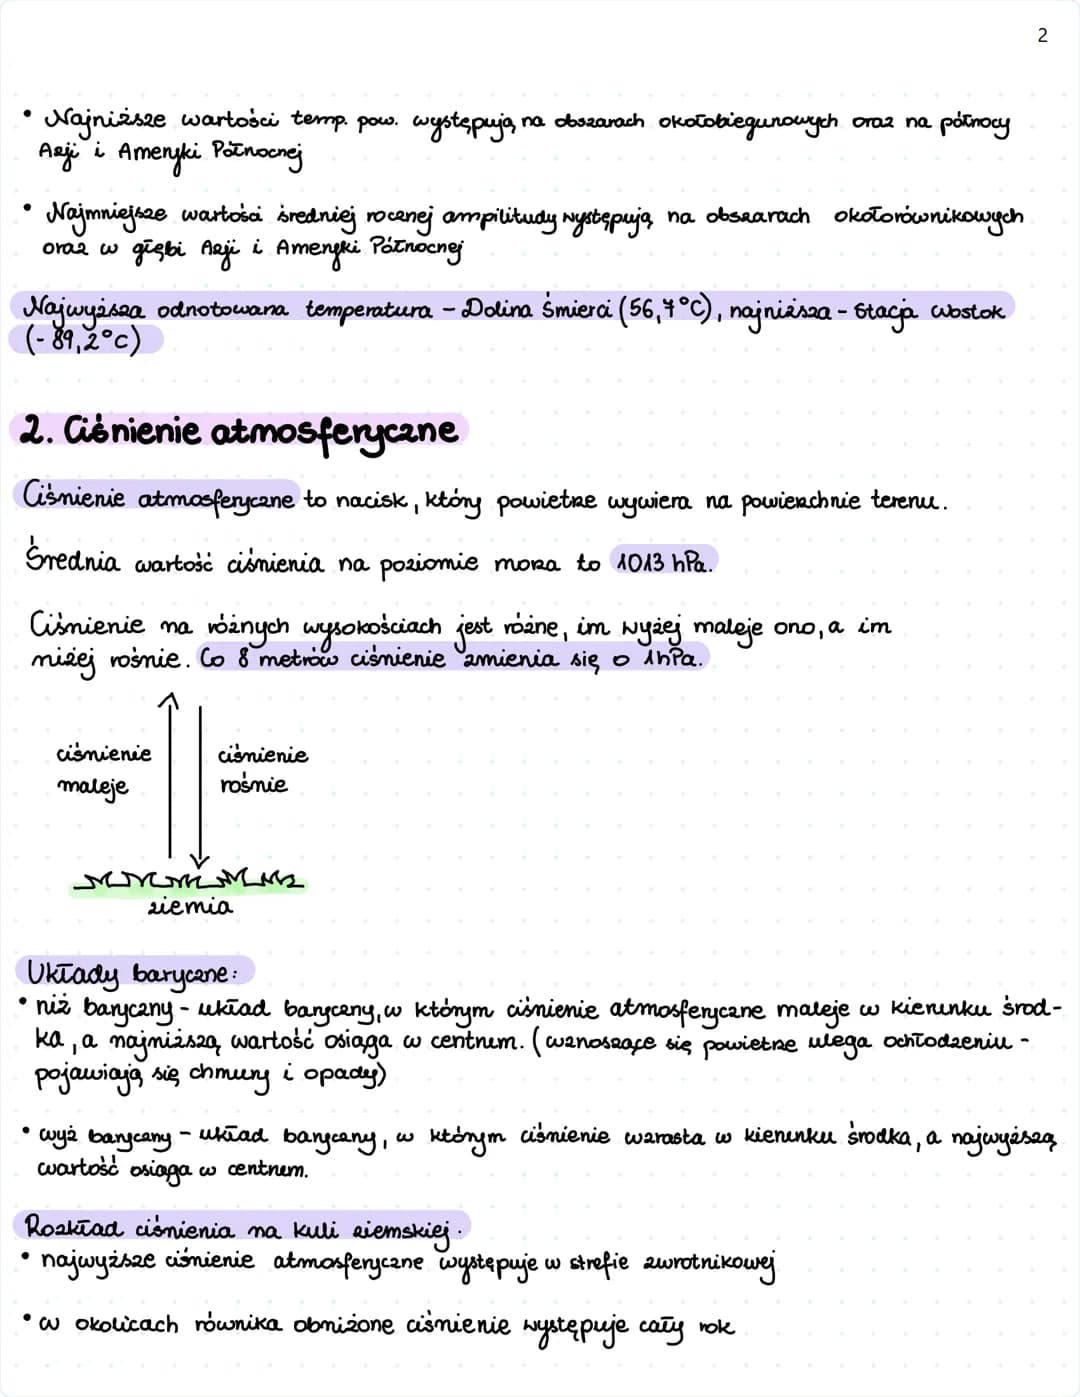 2
• Najniższe wartości temp. pow. występują na obszarach okołobiegunowych oraz na północy
Azji i Ameryki Północnej
• Najmniejsze wartości średniej rocznej ampilitudy występują na obszarach okołorównikowych
oraz w głębi Azji i Ameryki Północnej
Najwyższa odnotowana temperatura - Dolina Śmierci (56,7°C), najniższa - Stacja Wostok
(-89,2°C)
2. Ciśnienie atmosferyczne
Ciśnienie atmosferyczne to nacisk, który powietrze wywiera na powierzchnie terenu.
Średnia wartość ciśnienia na poziomie morza to 1013 hPa.
Ciśnienie na różnych wysokościach jest różne, im wyżej maleje ono, a im
niżej rośnie. Co 8 metrów ciśnienie zmienia się o 1hPa.
ciśnienie ciśnienie
maleje rośnie
ziemia
Układy baryczne:
• niż baryczny - układ baryczny, w którym ciśnienie atmosferyczne maleje w kierunku środ-
ka, a najniższą wartość osiąga w centrum. (wznoszące się powietrze ulega ochłodzeniu -
pojawiają się chmury i opady)
• wyż baryczny - układ baryczny, w którym ciśnienie wzrasta w kierunku środka, a najwyższą
wartość osiąga w centrum.
Rozkład ciśnienia na kuli ziemskiej.
• najwyższe ciśnienie atmosferyczne występuje w strefie zwrotnikowej
• w okolicach równika obniżone ciśnienie występuje cały rok